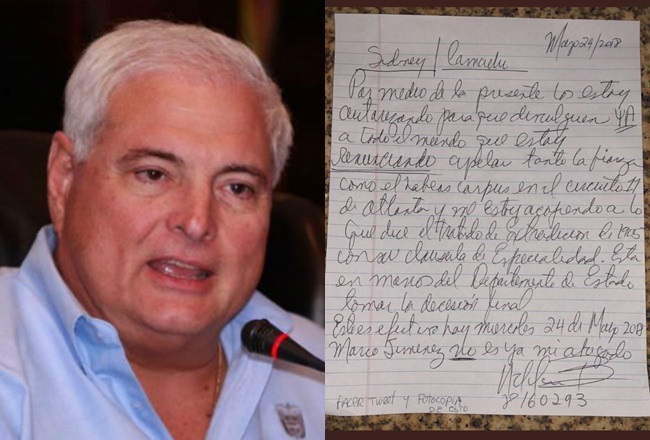 Mayo 24/2018
Sidney / Camacho
Por medio de la presente los estoy
autorizando para que divulguen YA
a todo el mundo que estoy
renunciando apelar tanto la fianza
como el habeas corpus en el circuito 11
de Atlanta y me estoy acogiendo a lo
que dice el tratado de extradicion de 1905
con su clausula de Especialidad. Esta
en manos del Departamento de Estado
tomar la decision final
efectivo hoy miercoles 24 de Mayo 2018
Marco Jimenez no es ya mi abogado
160293
HACER TWEET Y FOTOCOPIA
DE ESTO